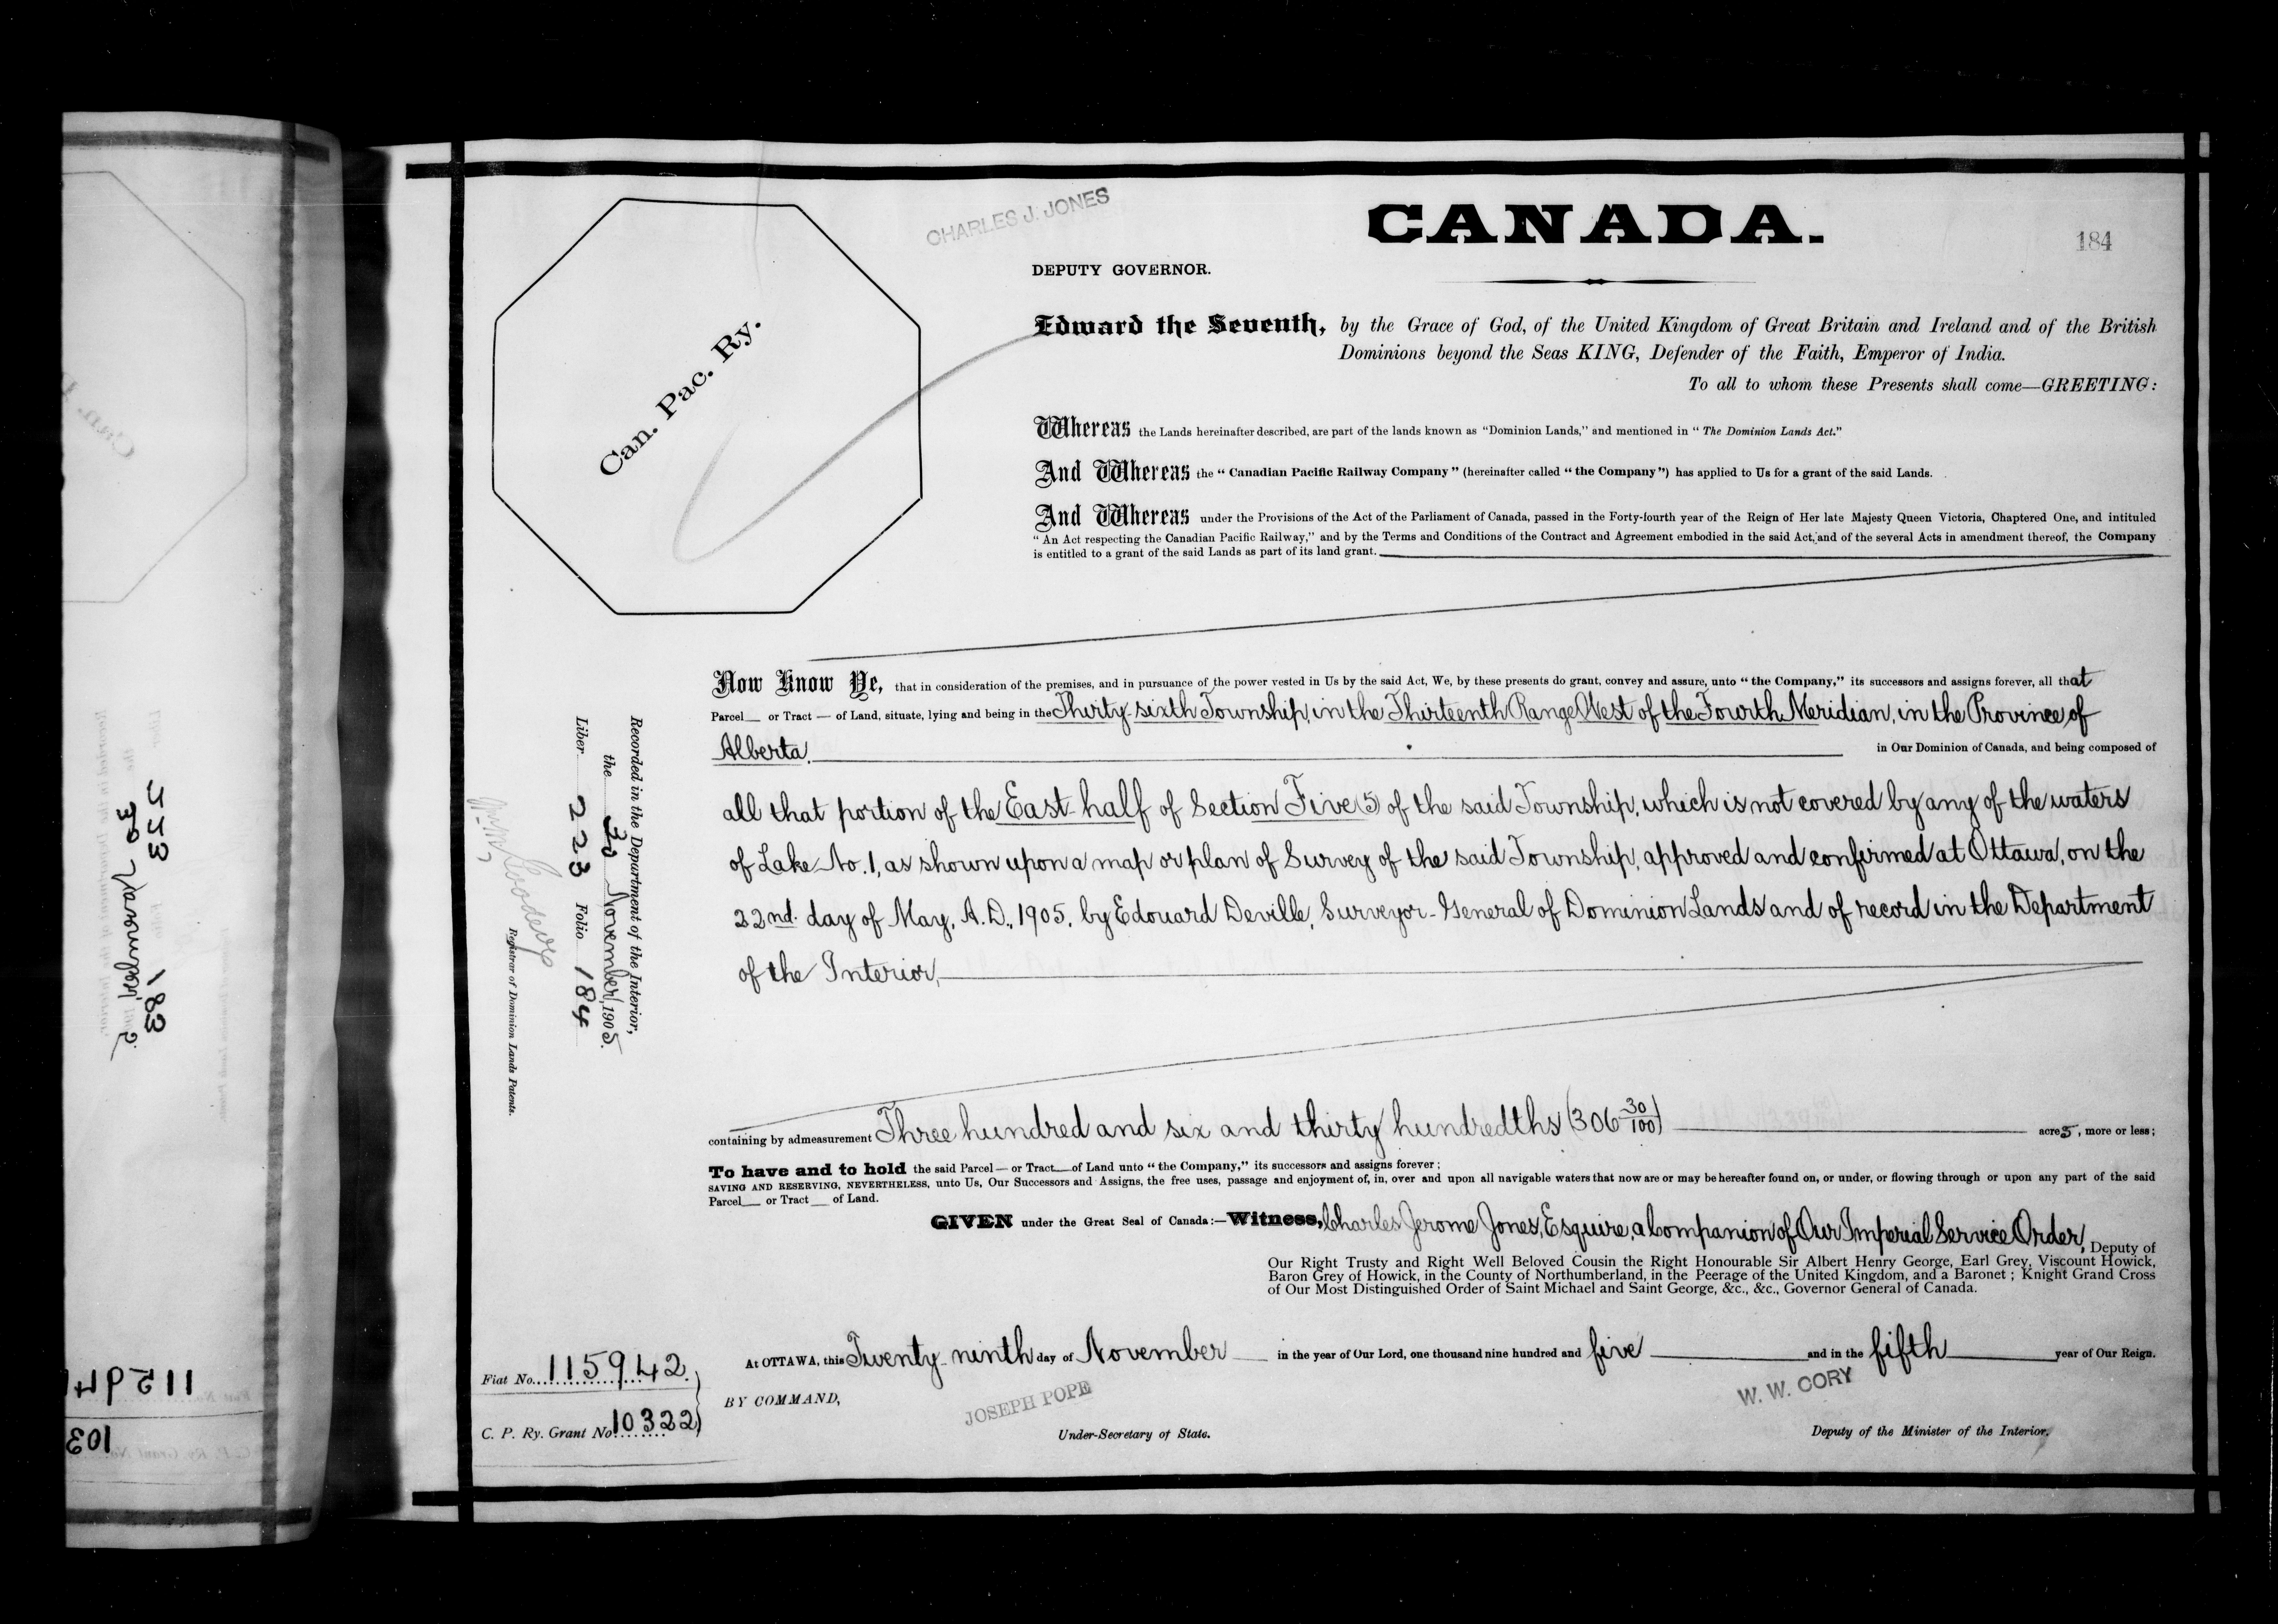 CHARLES J. JONES
CANADA.
184
DEPUTY GOVERNOR.
Can. Pac. Ry.
Edward the Seventh, by the Grace of God, of the United Kingdom of Great Britain and Ireland and of the British
Dominions beyond the Seas KING, Defender of the Faith, Emperor of India.
To all to whom these Presents shall come—GREETING:
Whereas the Lands hereinafter described, are part of the lands known as "Dominion Lands," and mentioned in "The Dominion Lands Act."
And Whereas the "Canadian Pacific Railway Company" (hereinafter called "the Company") has applied to Us for a grant of the said Lands.
And Whereas under the Provisions of the Act of the Parliament of Canada, passed in the Forty-fourth year of the Reign of Her late Majesty Queen Victoria, Chaptered One, and intituled
"An Act respecting the Canadian Pacific Railway," and by the Terms and Conditions of the Contract and Agreement embodied in the said Act, and of the several Acts in amendment thereof, the Company
is entitled to a grant of the said Lands as part of its land grant.
Now Know Ye, that in consideration of the premises, and in pursuance of the power vested in Us by the said Act, We, by these presents do grant, convey and assure, unto "the Company," its successors and assigns forever, all that
Parcel — or Tract — of Land, situate, lying and being in the Thirty-sixth Township, in the Thirteenth Range West of the Fourth Meridian, in the Province of
Alberta. in Our Dominion of Canada, and being composed of
all that portion of the East half of Section Five (5) of the said Township, which is not covered by any of the waters
of Lake No. 1, as shown upon a map or plan of Survey of the said Township, approved and confirmed at Ottawa, on the
22nd. day of May, A.D., 1905, by Edouard Deville, Surveyor-General of Dominion Lands and of record in the Department
of the Interior,
containing by admeasurement Three hundred and six and thirty hundredths (306 30/100) acres, more or less;
To have and to hold the said Parcel — or Tract — of Land unto "the Company," its successors and assigns forever;
SAVING AND RESERVING, NEVERTHELESS, unto Us, Our Successors and Assigns, the free uses, passage and enjoyment of, in, over and upon all navigable waters that now are or may be hereafter found on, or under, or flowing through or upon any part of the said
Parcel — or Tract — of Land.
GIVEN under the Great Seal of Canada:—Witness, Charles Jerome Jones, Esquire, a Companion of Our Imperial Service Order, Deputy of
Our Right Trusty and Right Well Beloved Cousin the Right Honourable Sir Albert Henry George, Earl Grey, Viscount Howick,
Baron Grey of Howick, in the County of Northumberland, in the Peerage of the United Kingdom, and a Baronet; Knight Grand Cross
of Our Most Distinguished Order of Saint Michael and Saint George, &c., &c., Governor General of Canada.
At OTTAWA, this Twenty-ninth day of November in the year of Our Lord, one thousand nine hundred and five and in the fifth year of Our Reign.
BY COMMAND,
JOSEPH POPE
Under-Secretary of State.
W. W. CORY
Deputy of the Minister of the Interior.
Fiat No. 115942.
C. P. Ry. Grant No. 10322
Recorded in the Department of the Interior,
the 30 November, 1905.
Liber 223 Folio 184
Registrar of Dominion Lands Patents.